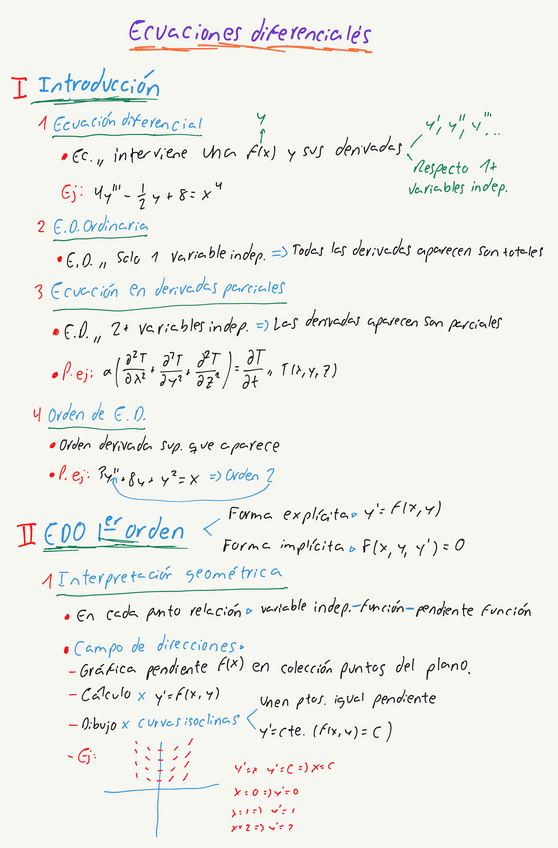 Ecuaciones diferenciales
I Introducción
1 Ecuación diferencial
• Ec. ,, interviene una f(x) y sus derivadas
y
y', y'', y'''...
Respecto 1+
variables indep.
Ej: 4y''' - 1/2 y + 8 = x^4
2 E.D. Ordinaria
• E.D. ,, Solo 1 variable indep. => Todas las derivadas aparecen son totales
3 Ecuación en derivadas parciales
• E.D. ,, 2+ variables indep. => Las derivadas aparecen son parciales
• P. ej: α(∂²T/∂x² + ∂²T/∂y² + ∂²T/∂z²) = ∂T/∂t ,, T(x, y, z)
4 Orden de E.D.
• Orden derivada sup. que aparece
• P. ej: 3y'' + 8y + y² = x => Orden 2
II EDO 1er orden
Forma explícita▹ y' = f(x, y)
Forma implícita▹ F(x, y, y') = 0
1 Interpretación geométrica
• En cada punto relación▹ variable indep.-función-pendiente función
• Campo de direcciones▹
- Gráfica pendiente f(x) en colección puntos del plano.
- Cálculo x y' = f(x, y)
- Dibujo x curvas isoclinas
Unen ptos. igual pendiente
y' = cte. (f(x, y) = C)
- Ej:
y'=x y'=C => x=C
x=0 => y'=0
x=1 => y'=1
x=2 => y'=2